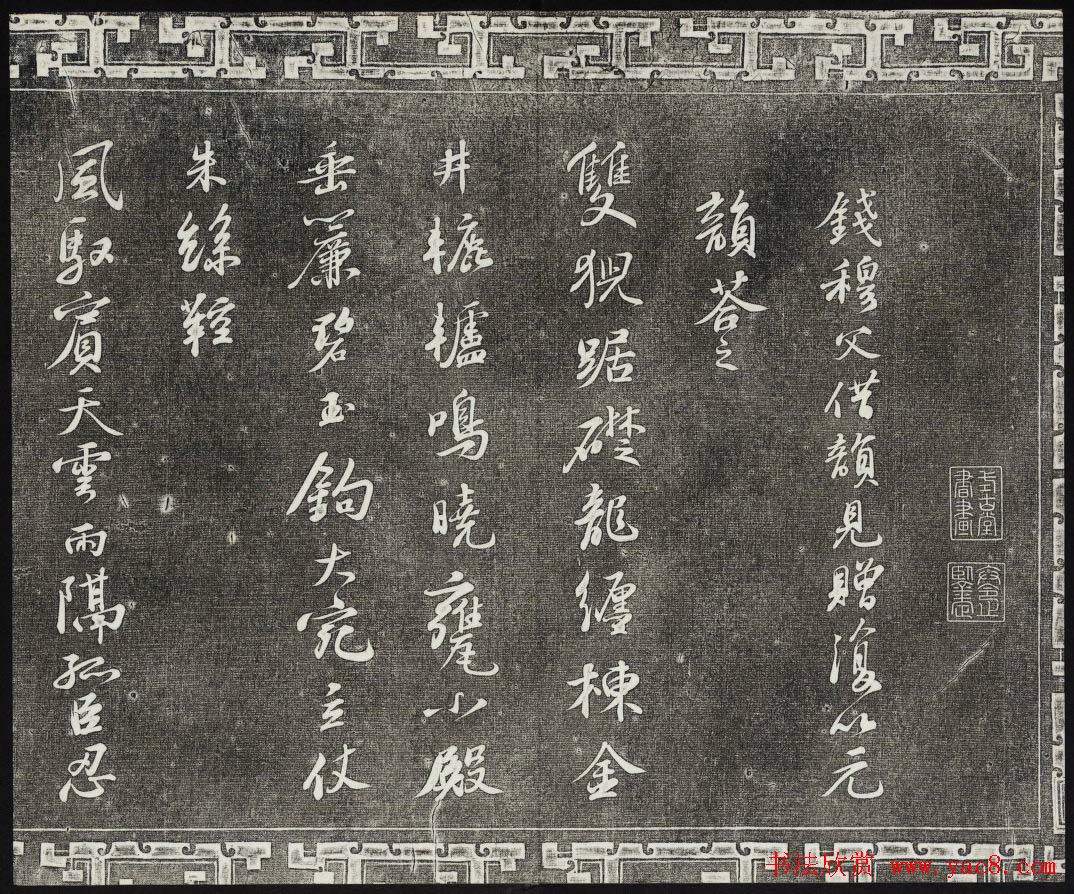 錢穆父借韻見贈復以元
韻荅之
雙猊踞礎龍纏棟金
井轆轤鳴曉甕小殿
垂簾碧玉鉤大宛立仗
朱絲鞚
風馭賓天雲雨隔孤臣忍
书法欣赏 www.yac8.com